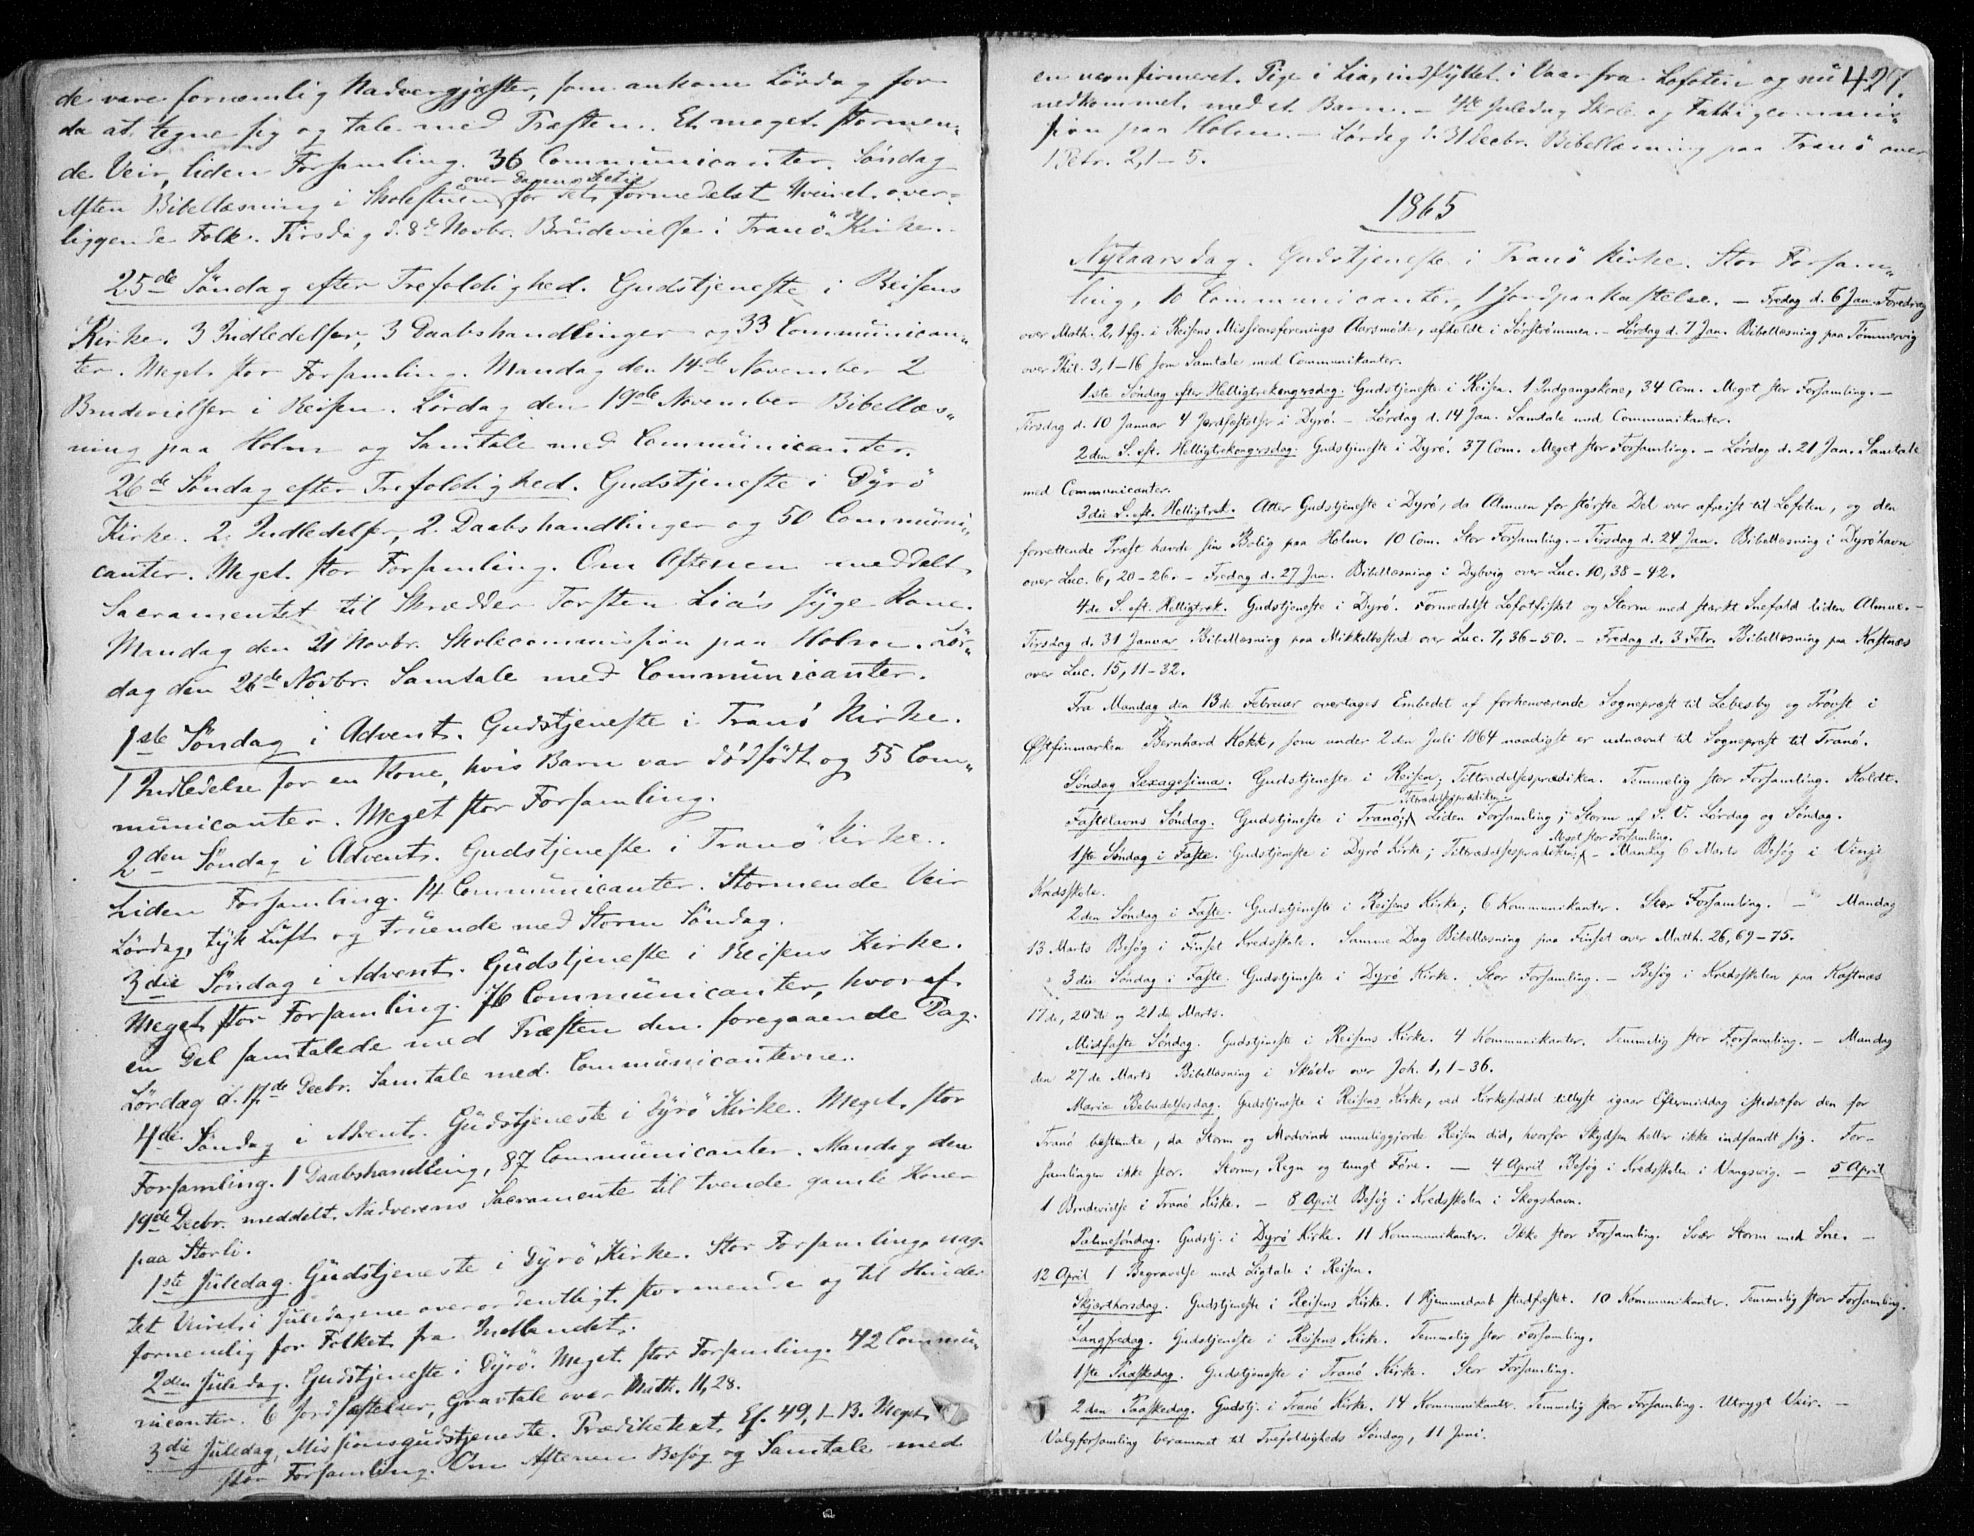 de vare fornemlig Nadvergjæster, som ankom Lördag for
da at tegne sig og tale med Præsten. Et meget stormen„
de Veir, liden Forsamling. 36 Communicanter. Söndag
over Dagens Lectie
Aften Bibellæsning i Skolestuen for det formedelst Uveiret over„
liggende Folk. Tirsdag d. 8de Novbr. Brudevielse i Tranö Kirke.
25de Söndag efter Trefoldighed. Gudstjeneste i Reisens
Kirke. 3 Indledelser, 3 Daabshandlinger og 33 Communican„
ter. Meget stor Forsamling. Mandag den 14de November 2
Brudevielser i Reisen. Lördag den 19de November Bibellæs„
ning paa Holm og Samtale med Communicanter.
26de Söndag efter Trefoldighed. Gudstjeneste i Dyrö
Kirke. 2 Indledelser, 2 Daabshandlinger og 50 Communi„
canter. Meget stor Forsamling. Om Aftenen meddelt
Sacramentet til Skrædder Torsten Lia's syge Kone.
Mandag den 21 Novbr. Skolecommission paa Holm. Lör„
dag den 26de Novbr. Samtale med Communicanter.
1ste Söndag i Advent. Gudstjeneste i Tranö Kirke.
1 Indledelse for en Kone, hvis Barn var dödfödt og 55 Com„
municanter. Meget stor Forsamling.
2den Söndag i Advent. Gudstjeneste i Tranö Kirke.
Liden Forsamling. 14 Communicanter. Stormende Veir
Lördag, tyk Luft og truende med Storm Söndag.
3die Söndag i Advent. Gudstjeneste i Reisens Kirke.
Meget stor Forsamling. 76 Communicanter, hvoraf
en Del samtalede med Præsten den foregaaende Dag.
Lördag d. 17de Decbr. Samtale med Communicanterne.
4de Söndag i Advent. Gudstjeneste i Dyrö Kirke. Meget stor
Forsamling. 1 Daabshandling, 87 Communicanter. Mandag den
19de Decbr. meddelt Nadverens Sacramente til tvende gamle Koner
paa Storli.
1ste Juledag. Gudstjeneste i Dyrö Kirke. Stor Forsamling, uag„
tet Veiret i Juledagene overordentligt stormende og til Hinder
fornemlig for Folket fra Indlandet.
2den Juledag. Gudstjeneste i Dyrö. Meget stor Forsamling. 42 Commu„
nicanter. 6 Jordfæstelser, Gravtale over Math. 11,28.
3die Juledag, Missionsgudstjeneste. Prædiketext Es. 49, 1-13. Meget
stor Forsamling. Om Aftenen Besög og Samtale med
en uconfirmeret Pige i Lia, indflyttet i Vaar fra Lofoten og nu 427.
nedkommet med et Barn. – 4de Juledag Skole og Fattigcommis„
sion paa Holm. – Lördag d. 31 Decbr. Bibellæsning paa Tranö over
1 Petr. 2,1-5.
1865
Nytaarsdag. Gudstjeneste i Tranö Kirke. Stor Forsam„
ling, 10 Communicanter, 1 Jordpaakastelse. – Fredag d. 6 Jan. Foredrag
over Math. 2,1 fg. i Reisens Missionsforenings Aarsmöde, afholdt i Sörströmmen. – Lördag d. 7 Jan. Bibellæsning paa Tömmervig
over Phil. 3,1-16 som Samtale med Communikanter.
1ste Söndag efter Helligtrekongersdag. Gudstjeneste i Reisen. 1 Indgangskone, 34 Com. Meget stor Forsamling. –
Tirsdag d. 10 Januar 4 Jordfæstelser i Dyrö. – Lördag d. 14 Jan. Samtale med Communikanter.
2den S. eft. Helligtrekongersdag. Gudstjeneste i Dyrö. 37 Com. Meget stor Forsamling. – Lördag d. 21 Jan. Samtale
med Communicanter.
3die S. eft. Helligtrek. Atter Gudstjeneste i Dyrö, da Almuen for störste Del var afreist til Lofoten, og den
forrettende Præst havde sin Bolig paa Holm. 10 Com. Stor Forsamling. – Tirsdag d. 24 Jan. Bibellæsning i Dyröhavn
over Luc. 6, 20-26. – Fredag d. 27 Jan. Bibellæsning i Dybvig over Luc. 10, 38-42.
4de S. eft. Helligtrek. Gudstjeneste i Dyrö. Formedelst Lofotfisket og Storm med stærkt Snefald liden Almue. –
Tirsdag d. 31 Januar Bibellæsning paa Mikkelbostad over Luc. 7, 36-50. – Fredag d. 3 Febr. Bibellæsning paa Kastnæs
over Luc. 15, 11-32.
Fra Mandag den 13de Februar overtages Embedet af forhenværende Sognepræst til Lebesby og Provst i
Østfinmarken Bernhard Kokk, som under 2den Juli 1864 naadigst er udnævnt til Sognepræst til Tranö.
Söndag Sexagesima. Gudstjeneste i Reisen; Tiltrædelsesprædiken. Temmelig stor Forsamling. Koldt.
Tiltrædelsesprædiken.
Fastelavns Söndag. Gudstjeneste i Tranö; Liden Forsamling; Storm af S.V. Lördag og Söndag.
Meget stor Forsamling.
1ste Söndag i Faste. Gudstjeneste i Dyrö Kirke; Tiltrædelsesprædiken; – Mandag 6 Marts Besög i Vinje
Kredsskole.
2den Söndag i Faste. Gudstjeneste i Reisens Kirke; 6 Kommunikanter. Stor Forsamling. – Mandag
13 Marts Besög i Finset Kredsskole. Samme Dag Bibellæsning paa Finset over Matth. 26, 69-75.
3die Söndag i Faste. Gudstjeneste i Dyrö Kirke. Stor Forsamling. – Besög i Kredsskolen paa Kastnæs
17de, 20de og 21de Marts.
Midfaste Söndag. Gudstjeneste i Reisens Kirke. 4 Kommunikanter. Temmelig stor Forsamling. – Mandag
den 27de Marts Bibellæsning i Skøelv over Joh. 1, 1-36.
Mariæ Bebudelsesdag. Gudstjeneste i Reisens Kirke, ved Kirkesedel tillyst igaar Eftermiddag istedetfor den for
Tranö bestemte, da Storm og Modvind umuliggjorde Reisen did, hvorfor Skydsen heller ikke indfandt sig. For-
samlingen ikke stor. Storm, Regn og tungt Före. – 4 April Besög i Kredsskolen i Vangsvig. – 5 April
1 Brudevielse i Tranö Kirke. – 8 April Besög i Kredsskolen i Skogshavn.
Palmesöndag. Gudstj. i Dyrö Kirke. 11 Kommunikanter. Ikke stor Forsamling. Svær Storm med Sne. –
12 April 1 Begravelse med Ligtale i Reisen.
Skjærthorsdag. Gudstjeneste i Reisens Kirke. 1 Hjemmedaab stadfæstet. 10 Kommunikanter. Temmelig stor Forsamling.
Langfredag. Gudstjeneste i Reisens Kirke. Temmelig stor Forsamling.
1ste Paaskedag. Gudstjeneste i Tranö Kirke. Stor Forsamling.
2den Paaskedag. Gudstj. i Tranö Kirke. 14 Kommunikanter. Temmelig stor Forsamling. Utrygt Veir. –
Valgforsamling berammet til Trefoldigheds Söndag, 11 Juni.